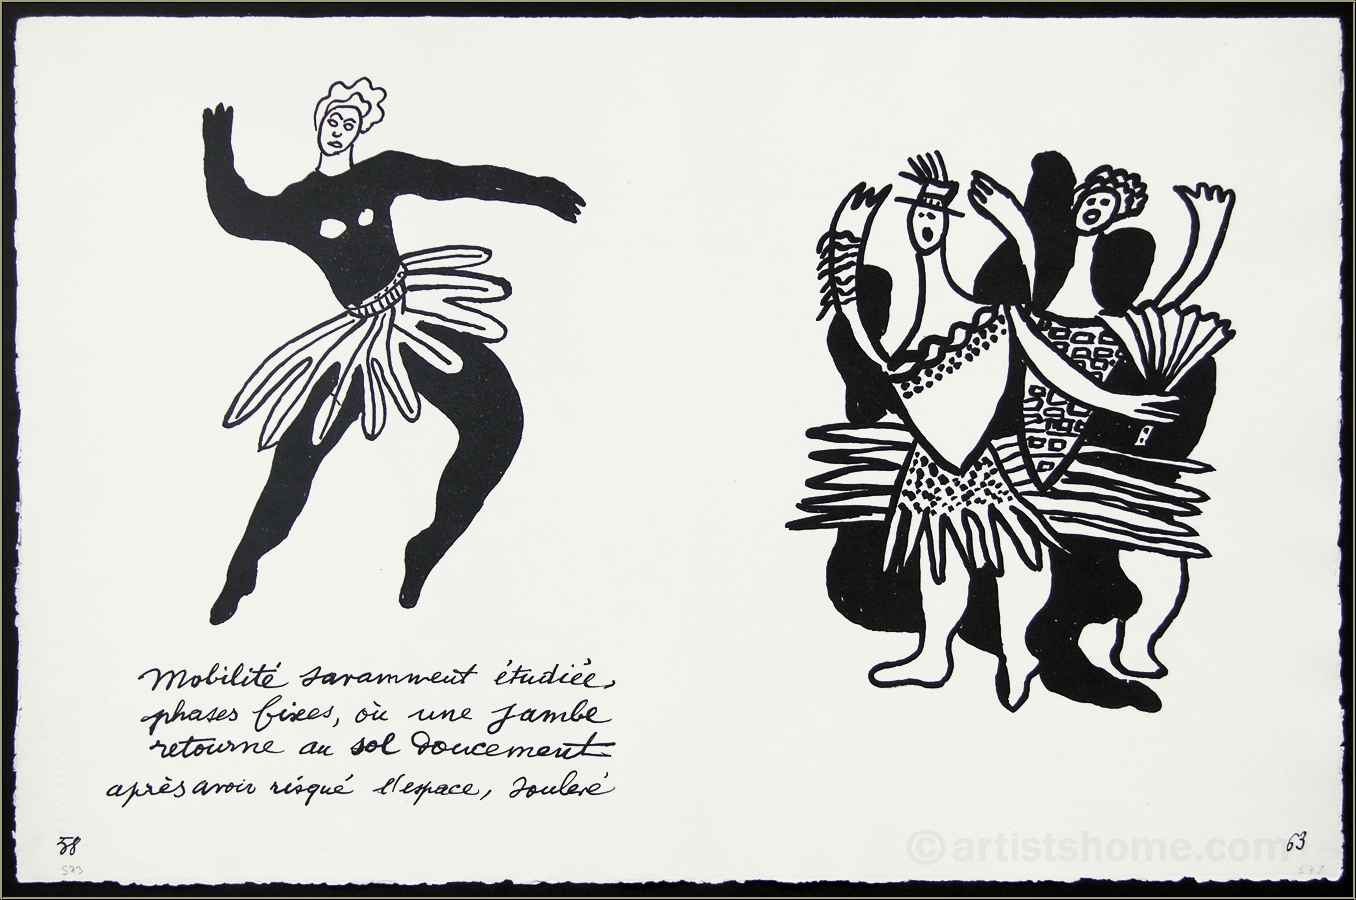 Mobilité savamment étudiée,
phases fixes, où une jambe
retourne au sol doucement
après avoir risqué l'espace, soulevé
58
573
63
© artistshome.com